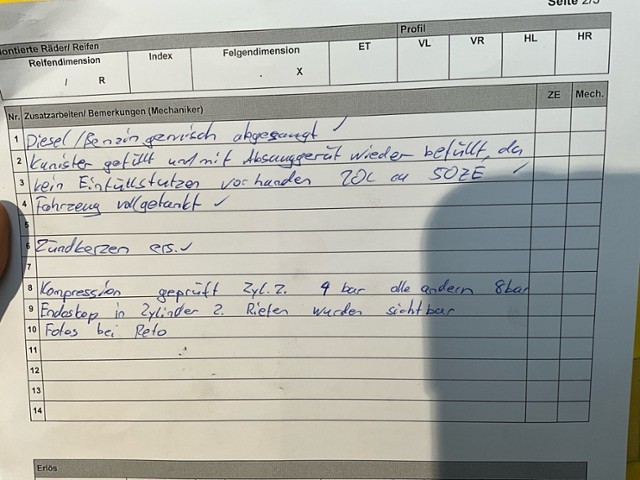 Seite 2/3
montierte Räder/ Reifen
Profil
Reifendimension
Index
Felgendimension
ET
VL
VR
HL
HR
/ R
. X
Nr. Zusatzarbeiten/ Bemerkungen (Mechaniker) ZE Mech.
1 Diesel/Benzingemisch abgesaugt ✓
2 Kanister gefüllt und mit Absauggerät wieder befüllt, da
3 kein Einfüllstutzen vorhanden 20L 50ZE ✓
4 Fahrzeug vollgetankt ✓
5
6 Zündkerzen ers. ✓
7
8 Kompression geprüft Zyl. 2. 4 bar alle andern 8bar
9 Endoskop in Zylinder 2. Riefen wurden sichtbar
10 Fotos bei Reto
11
12
13
14
Erlös